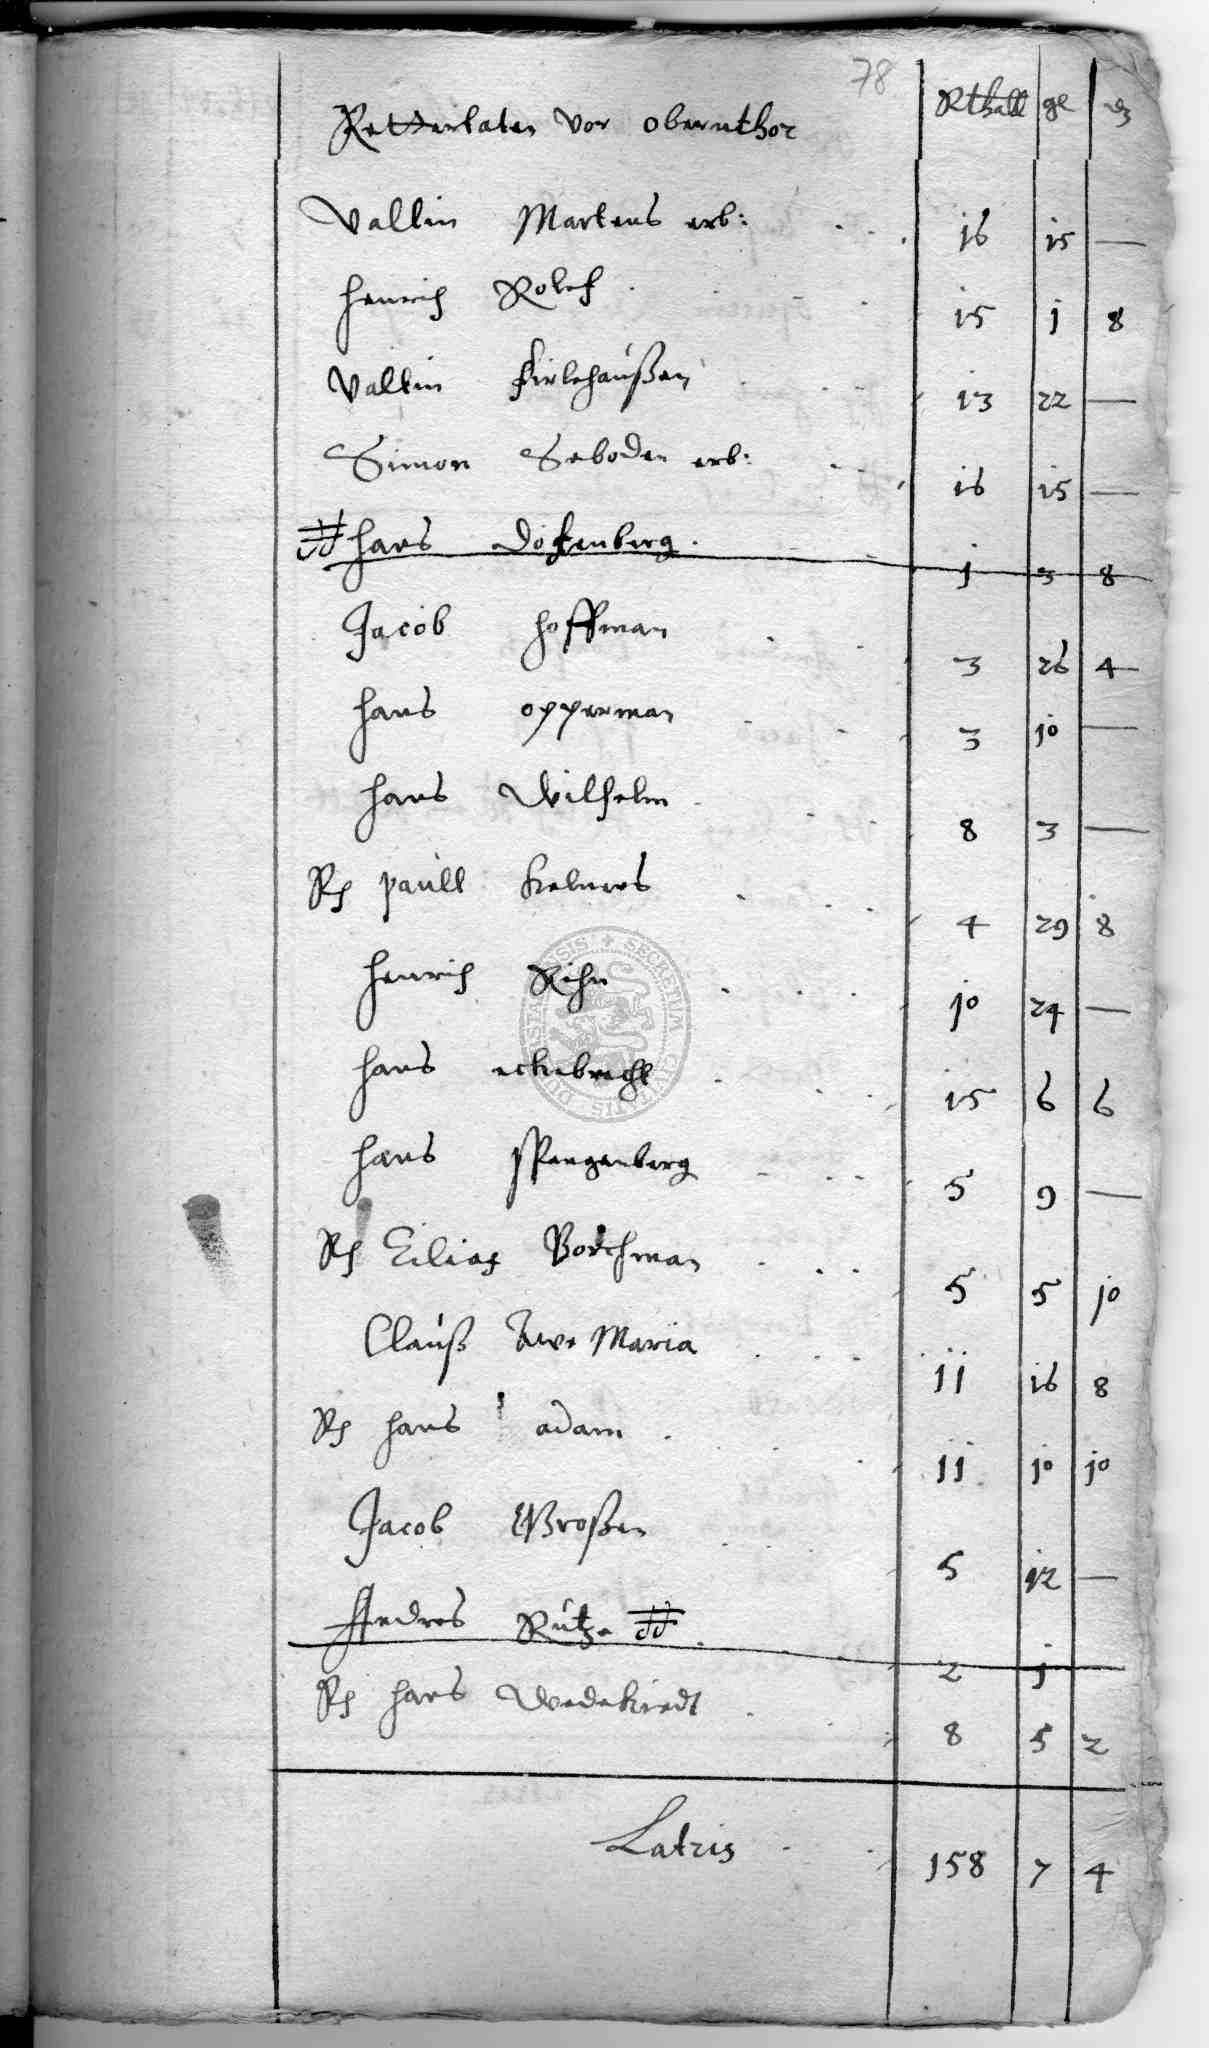 78
Retterlaten vor obernthor Rthall gl ₰
Valtin Martens erb: 16 15 —
Henrich Rolef 15 1 8
Valtin Firlehaußen 13 22 —
Simon Seboden erb: 16 15 —
Hans Dofenberg 1 3 8
Jacob Hoffman 3 26 4
Hans Opperman 3 10 —
Hans Wilhelm 8 3 —
Rh Paull Kelners 4 29 8
Henrich Rihn 10 24 —
Hans eckebrecht 15 6 6
Hans Spangenberg 5 9 —
Rh Eilias Borchman 5 5 10
Clauß Awe Maria 11 16 8
Rh Hans adam 11 10 10
Jacob Großen 5 12 —
Andres Rütze 2 1
Rh Hans Wedekindt 8 5 2
Latris 158 7 4